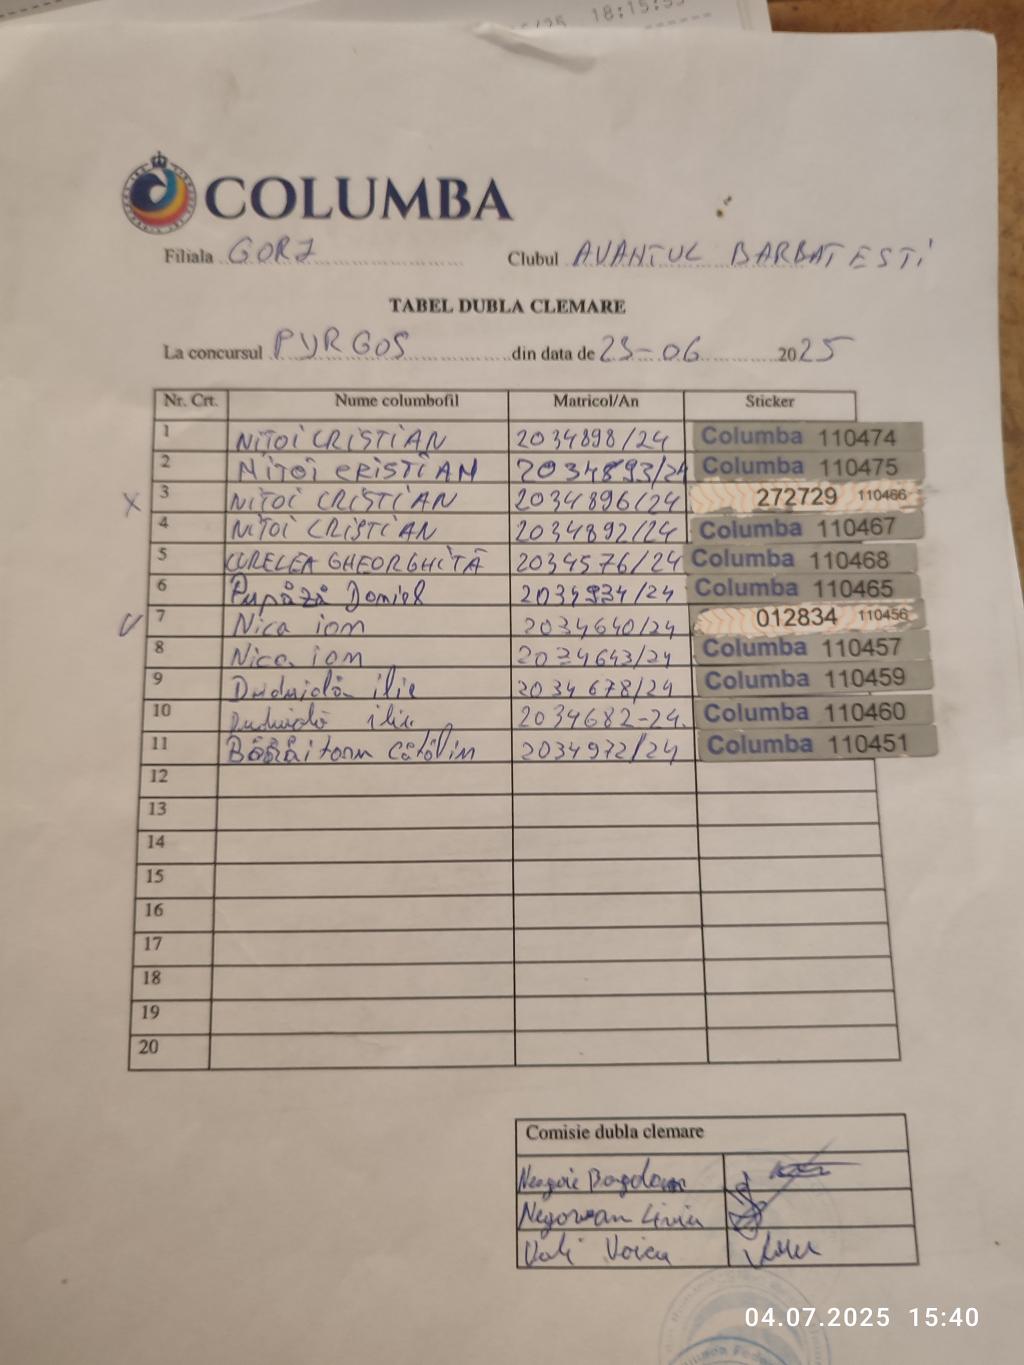 18:15:55
COLUMBA
Filiala GORJ Clubul AVANTUL BARBATESTI
TABEL DUBLA CLEMARE
La concursul PYRGOS din data de 23-06 2025
Nr. Crt. Nume columbofil Matricol/An Sticker
1 NITOI CRISTIAN 2034898/24 Columba 110474
2 NITOI CRISTIAN 2034893/24 Columba 110475
X 3 NITOI CRISTIAN 2034896/24 272729 110466
4 NITOI CRISTIAN 2034892/24 Columba 110467
5 CURELEA GHEORGHITĂ 2034576/24 Columba 110468
6 Pupăză Daniel 2034934/24 Columba 110465
V 7 Nica ion 2034640/24 012834 110456
8 Nica ion 2034643/24 Columba 110457
9 ilie 2034678/24 Columba 110459
10 ilie 2034682-24. Columba 110460
11 Cătălin 2034972/24 Columba 110451
12
13
14
15
16
17
18
19
20
Comisie dubla clemare
Neagoie Bogdan
Negovan Liviu
Vali Voicu
04.07.2025 15:40